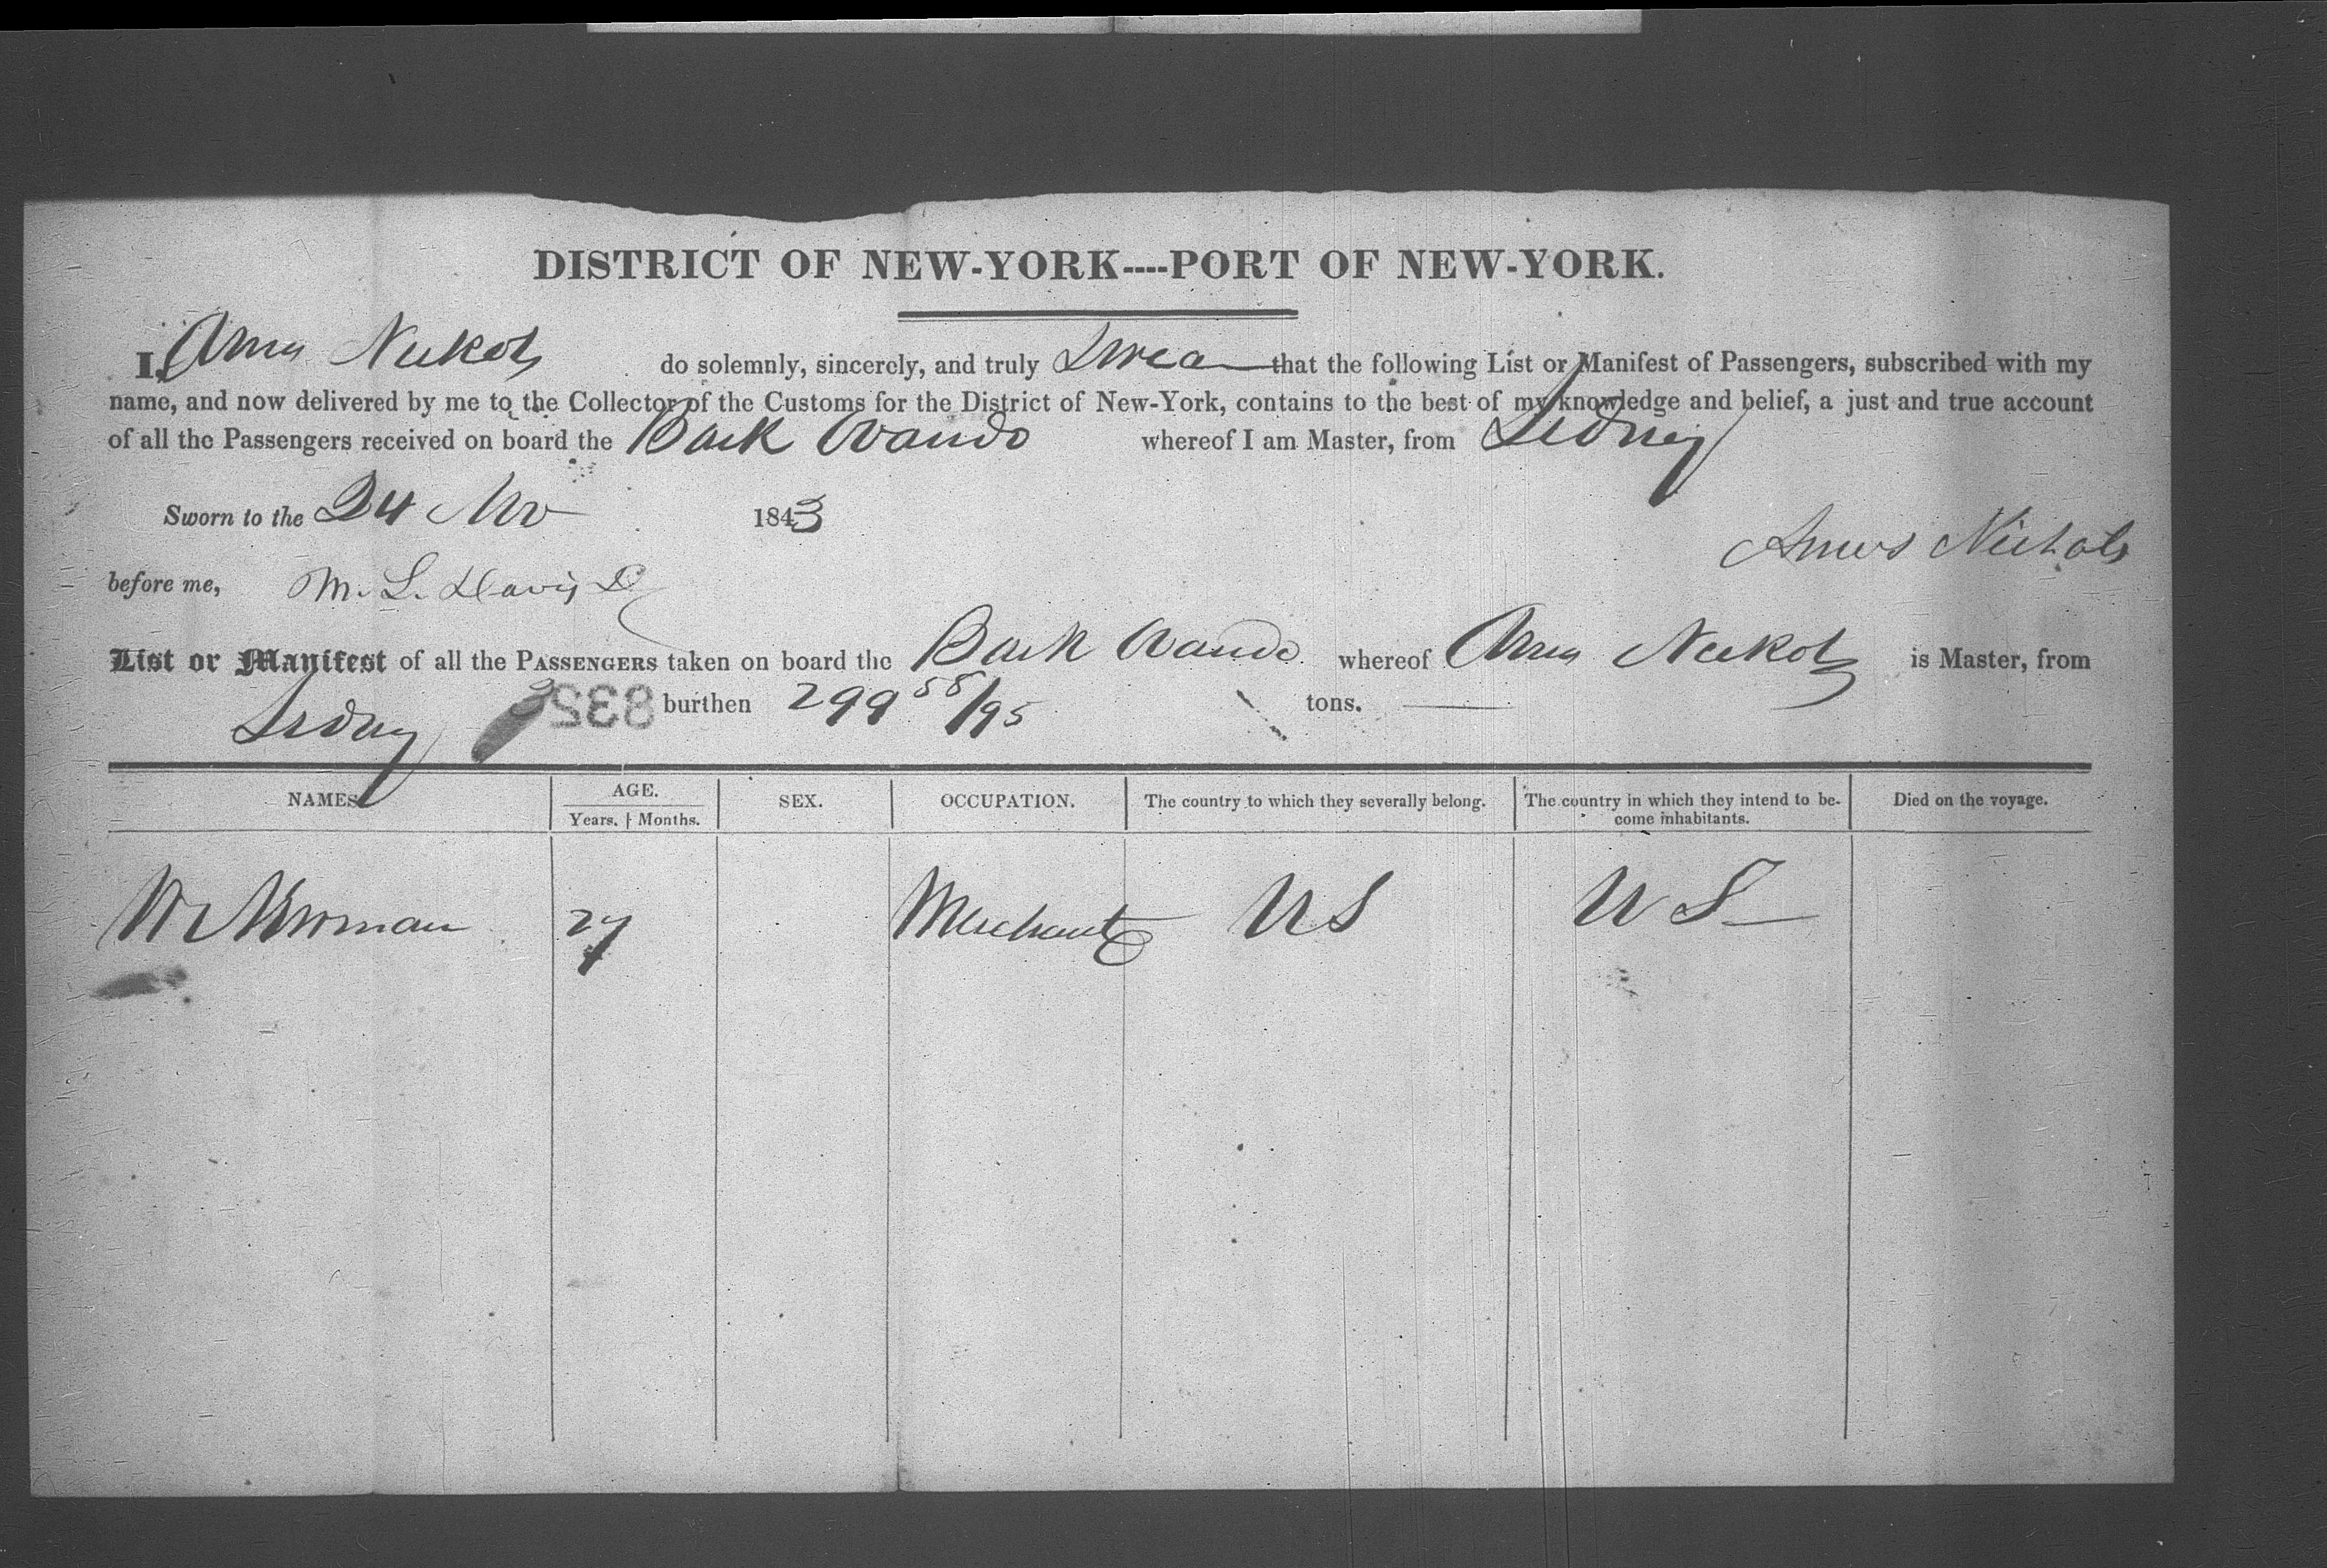 DISTRICT OF NEW-YORK----PORT OF NEW-YORK.
I, Amos Nickols do solemnly, sincerely, and truly Swear that the following List or Manifest of Passengers, subscribed with my
name, and now delivered by me to the Collector of the Customs for the District of New-York, contains to the best of my knowledge and belief, a just and true account
of all the Passengers received on board the Bark Wando whereof I am Master, from Sidney
Sworn to the 24 Nov 1843
Amos Nichols
before me, M. L. Davis
List or Manifest of all the PASSENGERS taken on board the Bark Wando whereof Amos Nickols is Master, from
Sidney 832 burthen 299 58/95 tons.
NAMES AGE. SEX. OCCUPATION. The country to which they severally belong. The country in which they intend to be- Died on the voyage.
Years. Months. come inhabitants.
27 Merchant US US